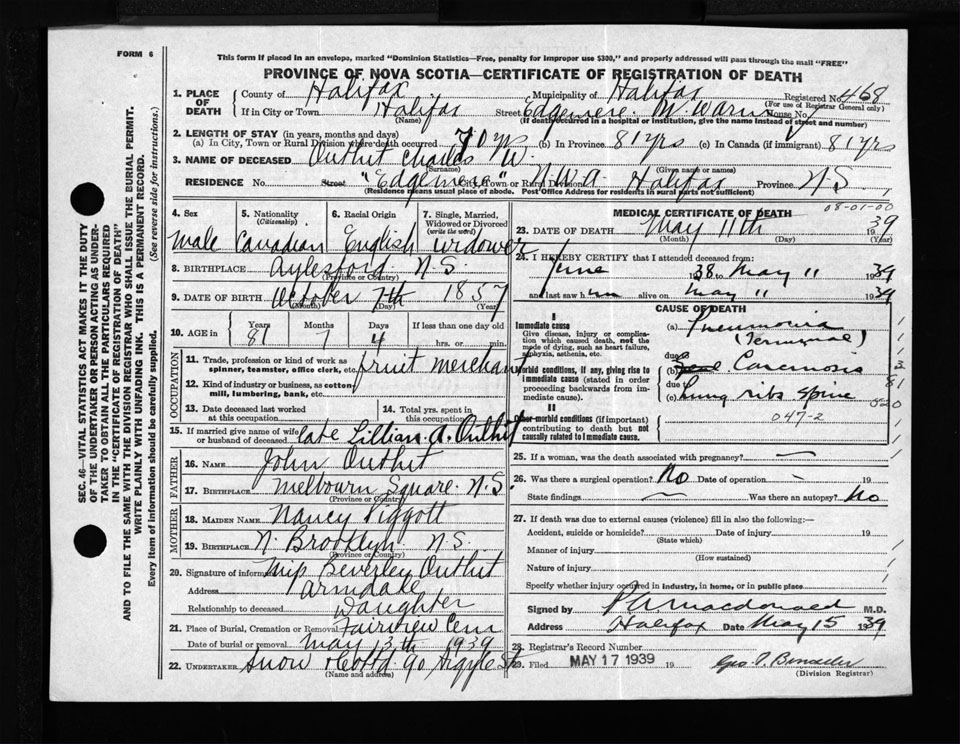 FORM 6
This form if placed in an envelope, marked "Dominion Statistics—Free, penalty for improper use $300," and properly addressed will pass through the mail "FREE"
PROVINCE OF NOVA SCOTIA—CERTIFICATE OF REGISTRATION OF DEATH
1. PLACE OF DEATH County of Halifax Municipality of Halifax Registered No. 468
(For use of Registrar General only)
If in City or Town Halifax Street Edgemere House No.
(Name) (If death occurred in a hospital or institution, give the name instead of street and number)
2. LENGTH OF STAY (in years, months and days)
(a) In City, Town or Rural Division where death occurred 70 yrs (b) In Province 81 yrs (c) In Canada (if immigrant) 81 yrs
3. NAME OF DECEASED Outhit Charles W.
(Surname) (Given name or names)
RESIDENCE No. Street "Edgemere" City, Town or Rural Division N.W.A. Halifax Province N.S.
(Residence means usual place of abode. Post Office Address in rural parts not sufficient)
4. Sex
5. Nationality
(Citizenship)
6. Racial Origin
7. Single, Married, Widowed or Divorced
(write the word)
Male Canadian English Widower
8. BIRTHPLACE Aylesford N.S.
(Province or Country)
9. DATE OF BIRTH October 7th 1857
(Month) (Day) (Year)
10. AGE in Years Months Days If less than one day old
81 7 4 hrs. or min.
OCCUPATION
11. Trade, profession or kind of work as spinner, teamster, office clerk, etc. fruit merchant
12. Kind of industry or business, as cotton mill, lumbering, bank, etc.
13. Date deceased last worked at this occupation
14. Total yrs. spent in this occupation
15. If married give name of wife or husband of deceased late Lillian A. Outhit
FATHER
16. NAME John Outhit
17. BIRTHPLACE Melbourn Square N.S.
(Province or Country)
MOTHER
18. MAIDEN NAME Nancy Piggott
19. BIRTHPLACE N. Brooklyn N.S.
(Province or Country)
20. Signature of informant Beverley Outhit
Address Armdale
Relationship to deceased Daughter
21. Place of Burial, Cremation or Removal Fairview Cem
Date of burial or removal May 13th 1939
22. UNDERTAKER Snow & Co Ltd 90 Argyle St
(Name and address)
MEDICAL CERTIFICATE OF DEATH
08-01-00
23. DATE OF DEATH May 11th 1939
(Month) (Day) (Year)
24. I HEREBY CERTIFY that I attended deceased from:
June 38 to May 11 1939
and last saw him alive on May 11 1939
CAUSE OF DEATH
I
Immediate cause
Give disease, injury or complication which caused death, not the mode of dying, such as heart failure, asphyxia, asthenia, etc.
(a) Pneumonia
(Terminal)
due to
Morbid conditions, if any, giving rise to immediate cause (stated in order proceeding backwards from immediate cause).
(b) Carcinosis
due to
(c) Lung ribs spine
II
Other morbid conditions (if important) contributing to death but not causally related to immediate cause.
047-2
25. If a woman, was the death associated with pregnancy?
26. Was there a surgical operation? No Date of operation 19
State findings Was there an autopsy? No
27. If death was due to external causes (violence) fill in also the following:—
Accident, suicide or homicide? Date of injury 19
(State which)
Manner of injury
(How sustained)
Nature of injury
Specify whether injury occurred in industry, in home, or in public place
Signed by MacDonald M.D.
Address Halifax Date May 15 1939
28. Registrar's Record Number
29. Filed MAY 17 1939 19
(Division Registrar)
SEC. 46—VITAL STATISTICS ACT MAKES IT THE DUTY
OF THE UNDERTAKER OR PERSON ACTING AS UNDER-
TAKER TO OBTAIN ALL THE PARTICULARS REQUIRED
IN THE "CERTIFICATE OF REGISTRATION OF DEATH"
AND TO FILE THE SAME WITH THE DIVISION REGISTRAR WHO SHALL ISSUE THE BURIAL PERMIT.
WRITE PLAINLY WITH UNFADING INK. THIS IS A PERMANENT RECORD.
Every item of information should be carefully supplied. (See reverse side for instructions.)